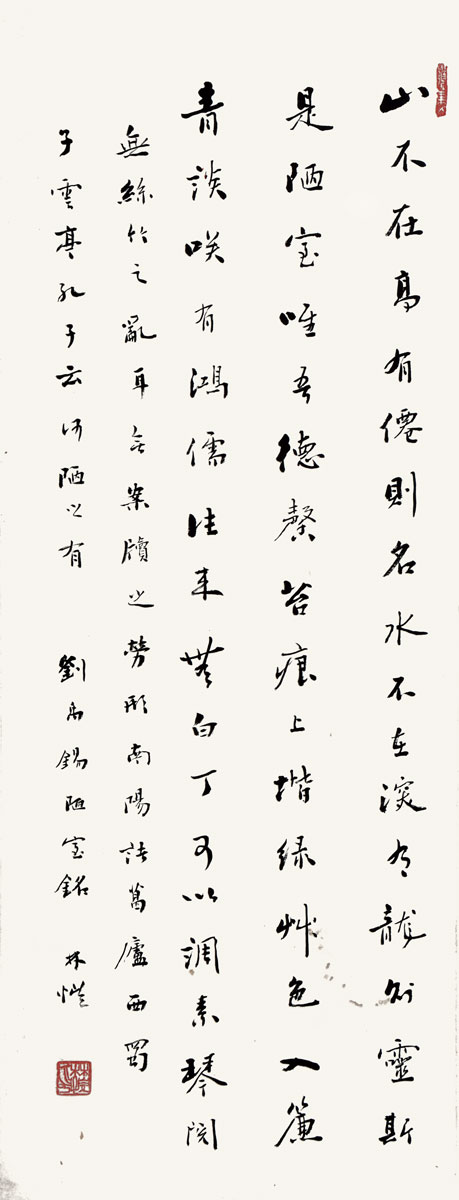 山不在高有僊則名水不在深有龍則靈斯
是陋室唯吾德馨苔痕上堦緑艸色入簾
青談咲有鴻儒往来無白丁可以調素琴閲
無絲竹之亂耳無案牘之勞形南陽諸葛廬西蜀
子雲亭孔子云何陋之有 劉禹錫陋室銘 林愷